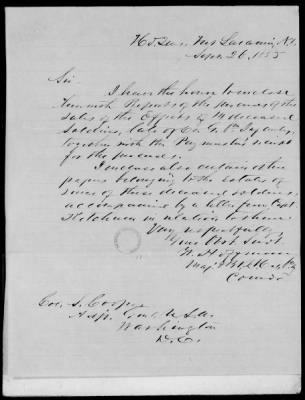 Hd. Qrs. Fort Laramie, N.T.
Sept. 26, 1855
Sir
I have the honor to enclose
herewith Reports of the proceeds of the
sales of the Effects of deceased
Soldiers, late of Co. G. 6th Infantry,
together with the Paymaster's receipt
for the proceeds.
I enclose also certain other
papers belonging to the estates of
some of these deceased soldiers,
accompanied by a letter from Capt.
Ketchum in relation to them.
Very respectfully,
Your Obt. Servt.
W. Hoffman
Maj.
Comdg
Col. S. Cooper
Adjt. Genl. U.S.A.
Washington
D.C.